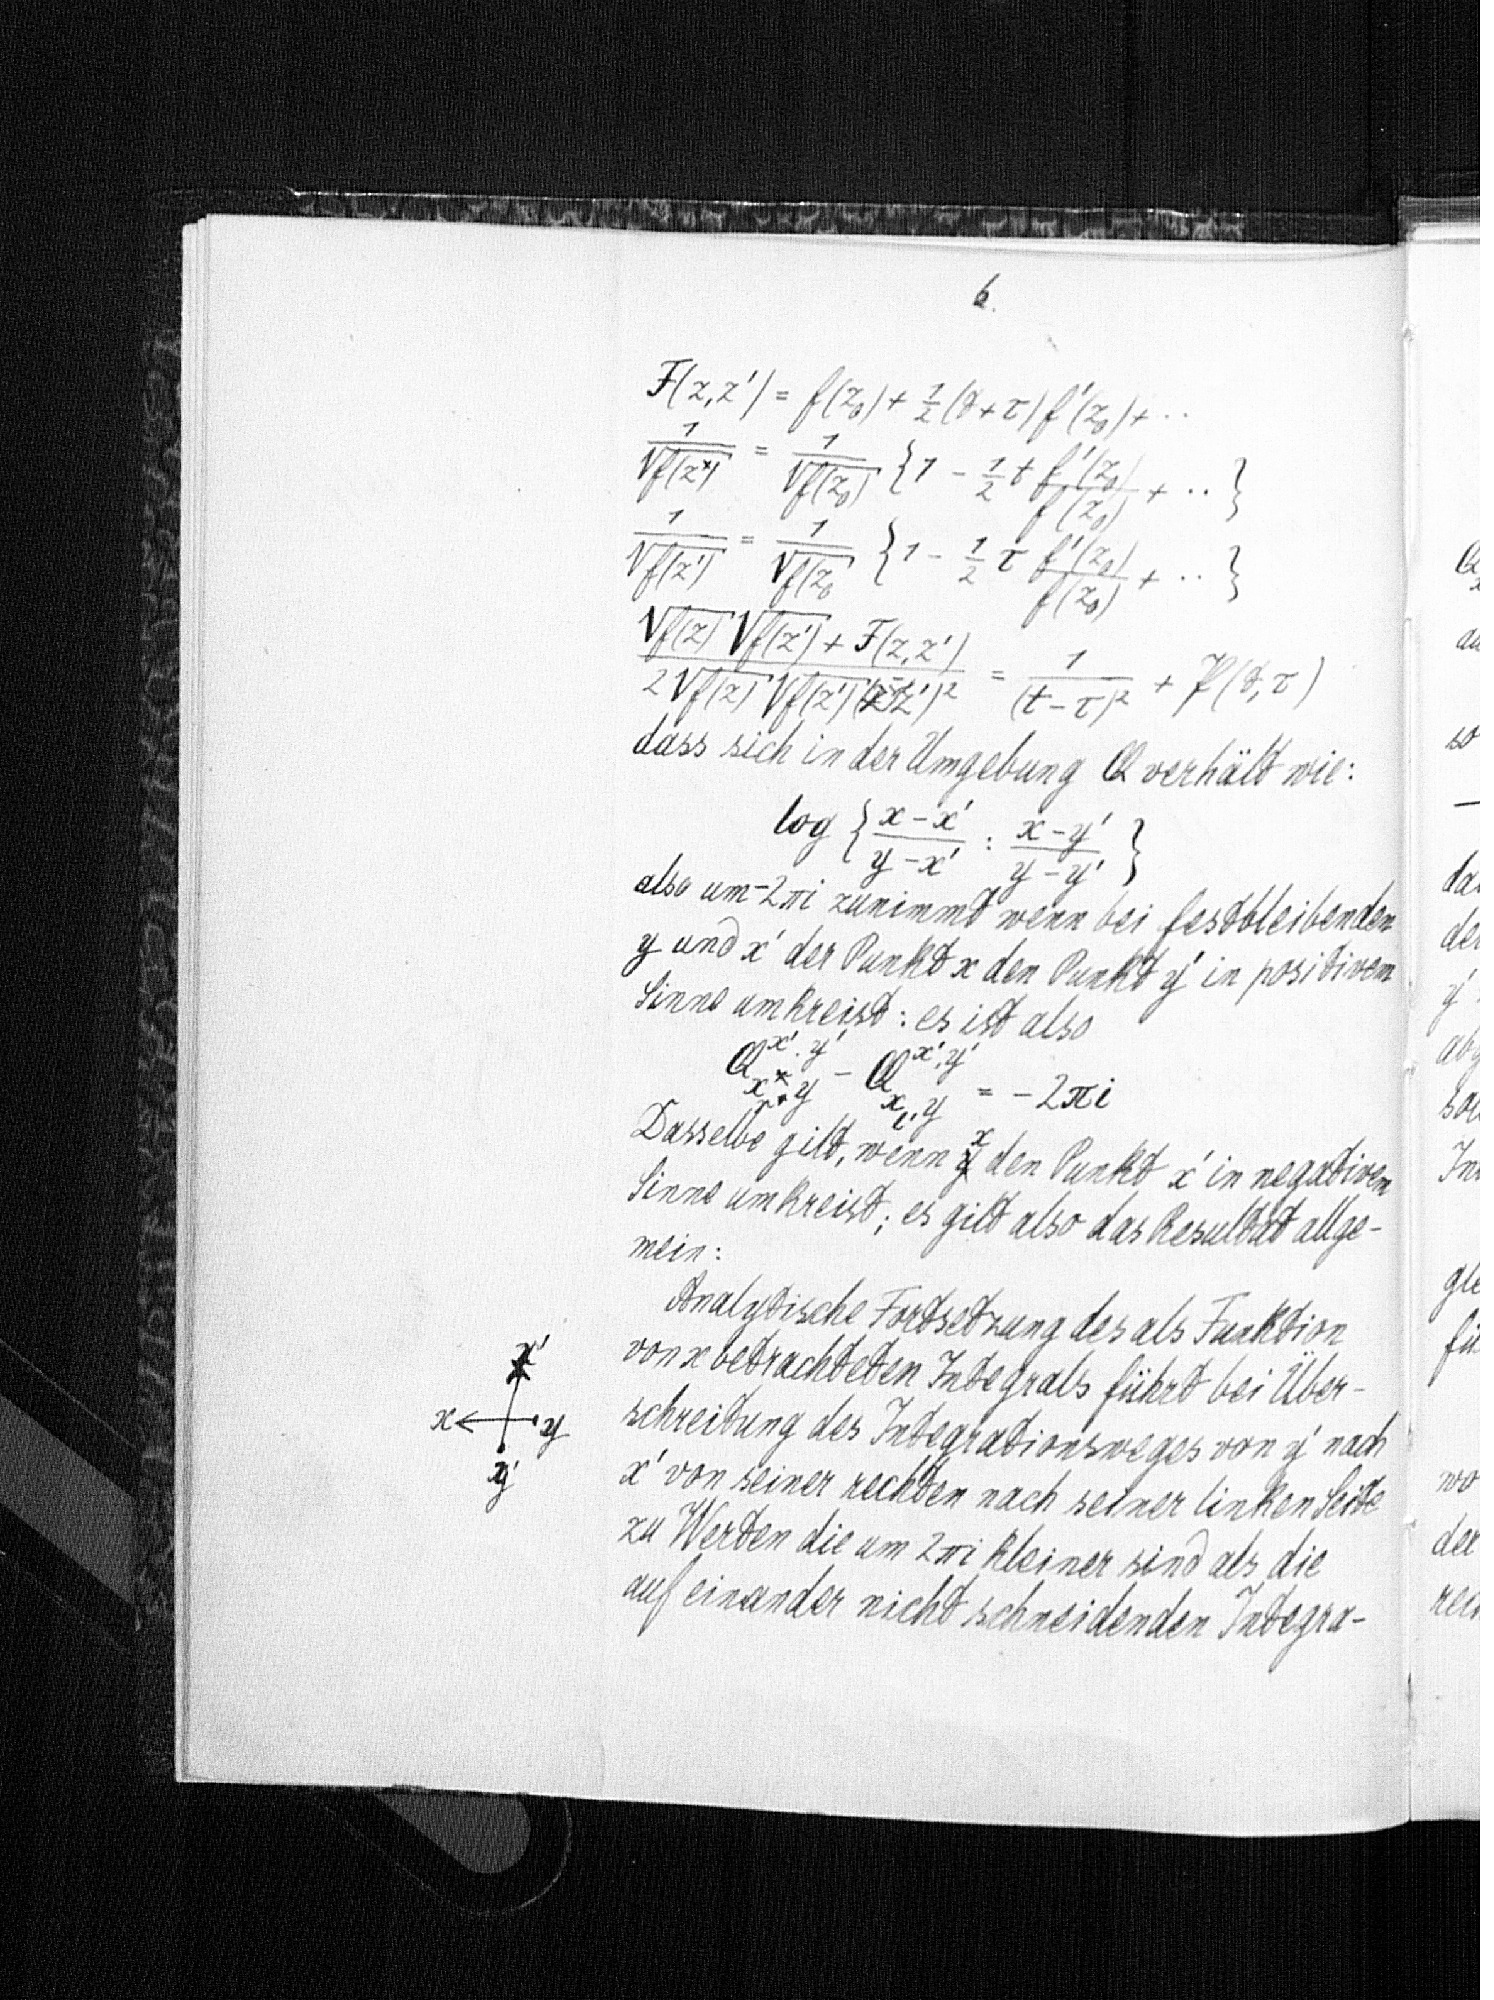 6.
F(z,z') = f(z₀) + ½(t+τ) f'(z₀) + ··
1/√f(z*) = 1/√f(z₀) {1 − ½ t f'(z₀)/f(z₀) + ·· }
1/√f(z') = 1/√f(z₀ {1 − ½ τ f'(z₀)/f(z₀) + ·· }
(√f(z) √f(z') + F(z,z')) / (2√f(z) √f(z') (z-z')²) = 1/(t−τ)² + P(t,τ)
dass sich in der Umgebung Q verhält wie:
log { (x−x')/(y−x') : (x−y')/(y−y') }
also um −2πi zunimmt wenn bei festbleibenden
y und x' der Punkt x den Punkt y' in positivem
Sinne umkreist: es ist also
Q^{x'.y'}_{x*y} − Q^{x',y'}_{x,y} = −2πi
Dasselbe gilt, wenn x den Punkt x' in negativem
Sinne umkreist; es gilt also das Resultat allge-
mein:
Analytische Fortsetzung des als Funktion
von x betrachteten Integrals führt bei Über-
schreitung des Integrationsweges von y' nach
x' von seiner rechten nach seiner linken Seite
zu Werten die um 2πi kleiner sind als die
auf einander nicht schneidenden Integra-
x'
x y
y'